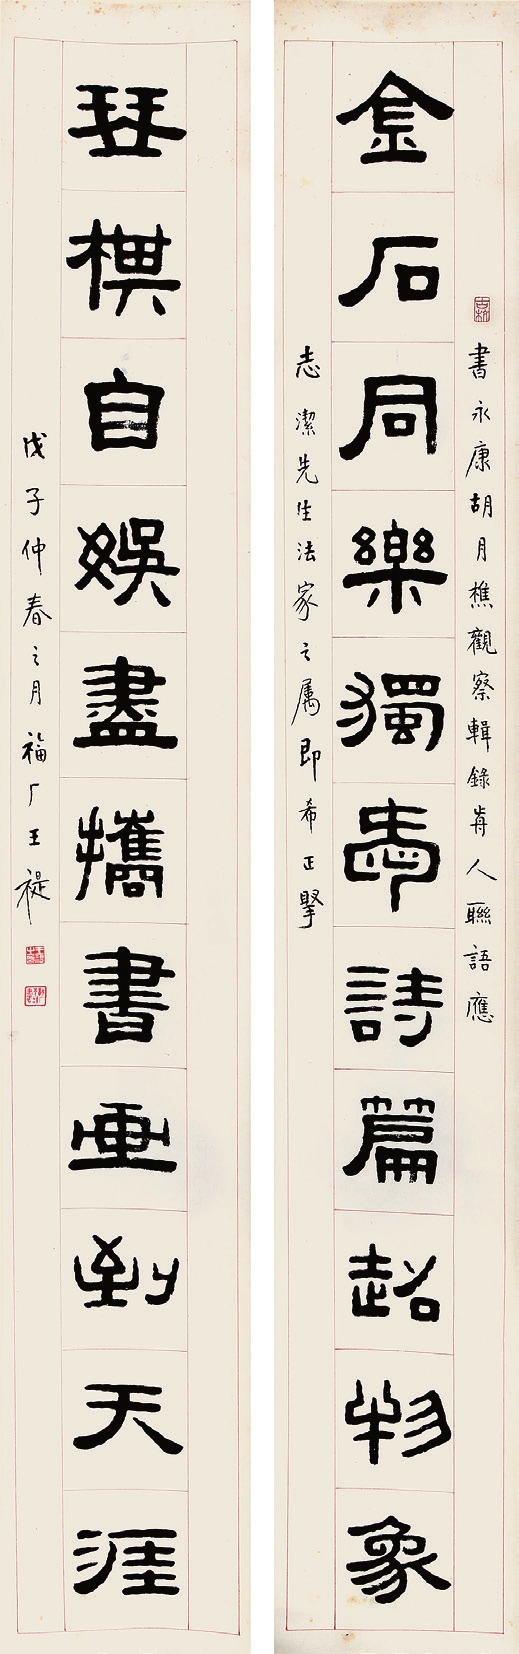 書永康胡月樵觀察輯錄歬人聯語應
金石同樂獨㤅詩篇超物象
志潔先生法家之属即希正擥
琹棋自娛盡攜書畫到天涯
戊子仲春之月福厂王禔